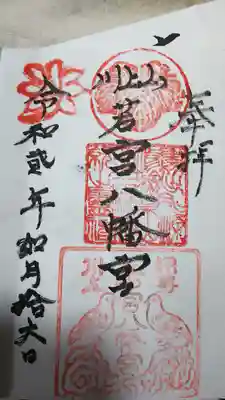 奉拝
川上山
若宮八幡宮
令和貳年如月拾六日